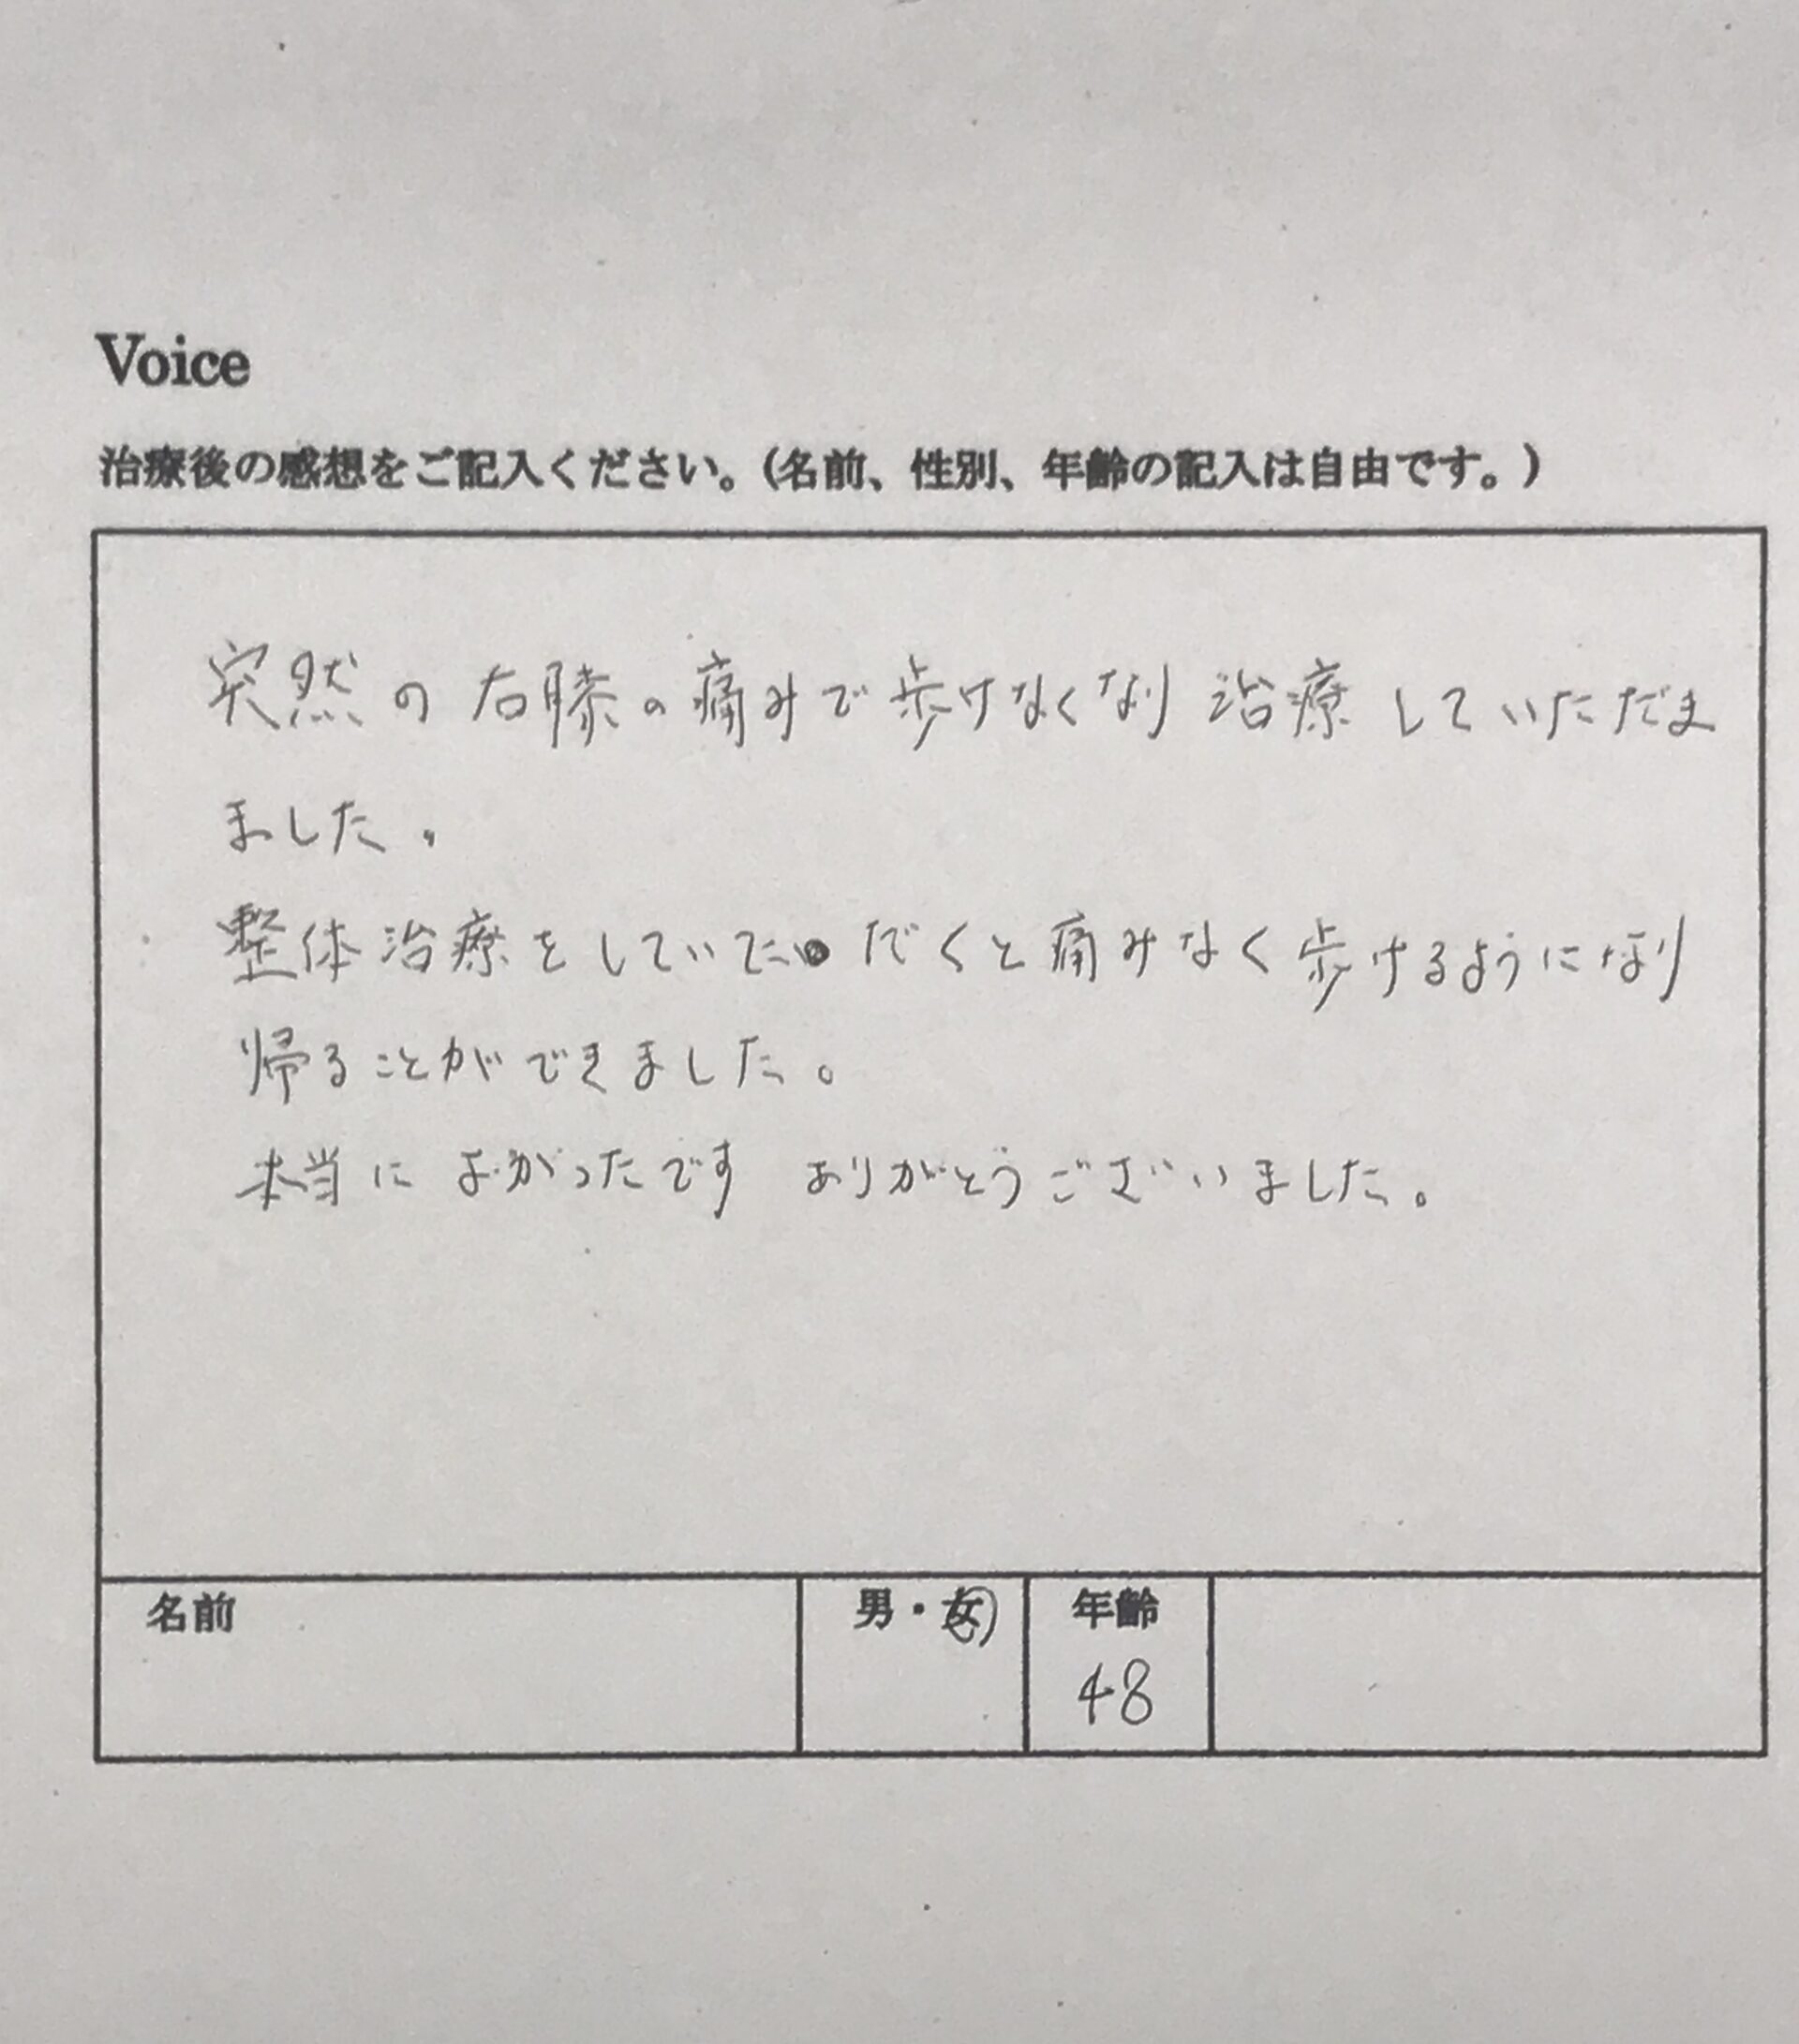 Voice
治療後の感想をご記入ください。(名前、性別、年齢の記入は自由です。)
突然の右膝の痛みで歩けなくなり治療していただま
ました。
整体治療をしていただくと痛みなく歩けるようになり
帰ることができました。
本当によかったです ありがとうございました。
名前 男・女 年齢
48